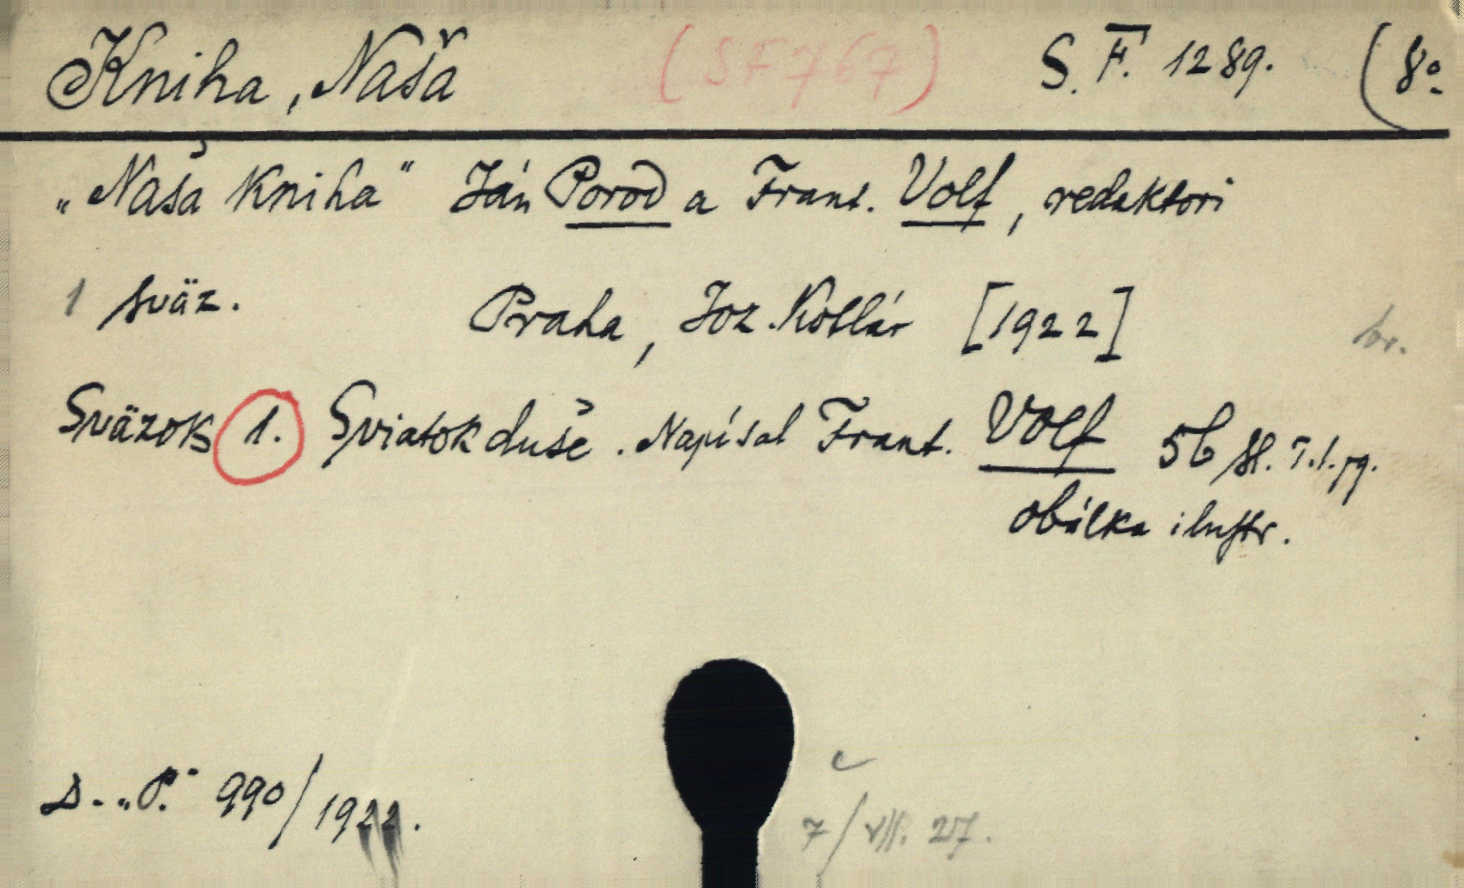 Kniha, Naša (SF767) S. F. 1289. (8º
„Naša Kniha" Ján Porod a Frant. Volf, redaktori
1 sväz. Praha, Joz. Kotlár [1922] br.
Sväzok 1. Sviatok duše. Napísal Frant. Volf 56
obálka ilustr.
D. „P." 990/1922.
c
7/VII. 27.